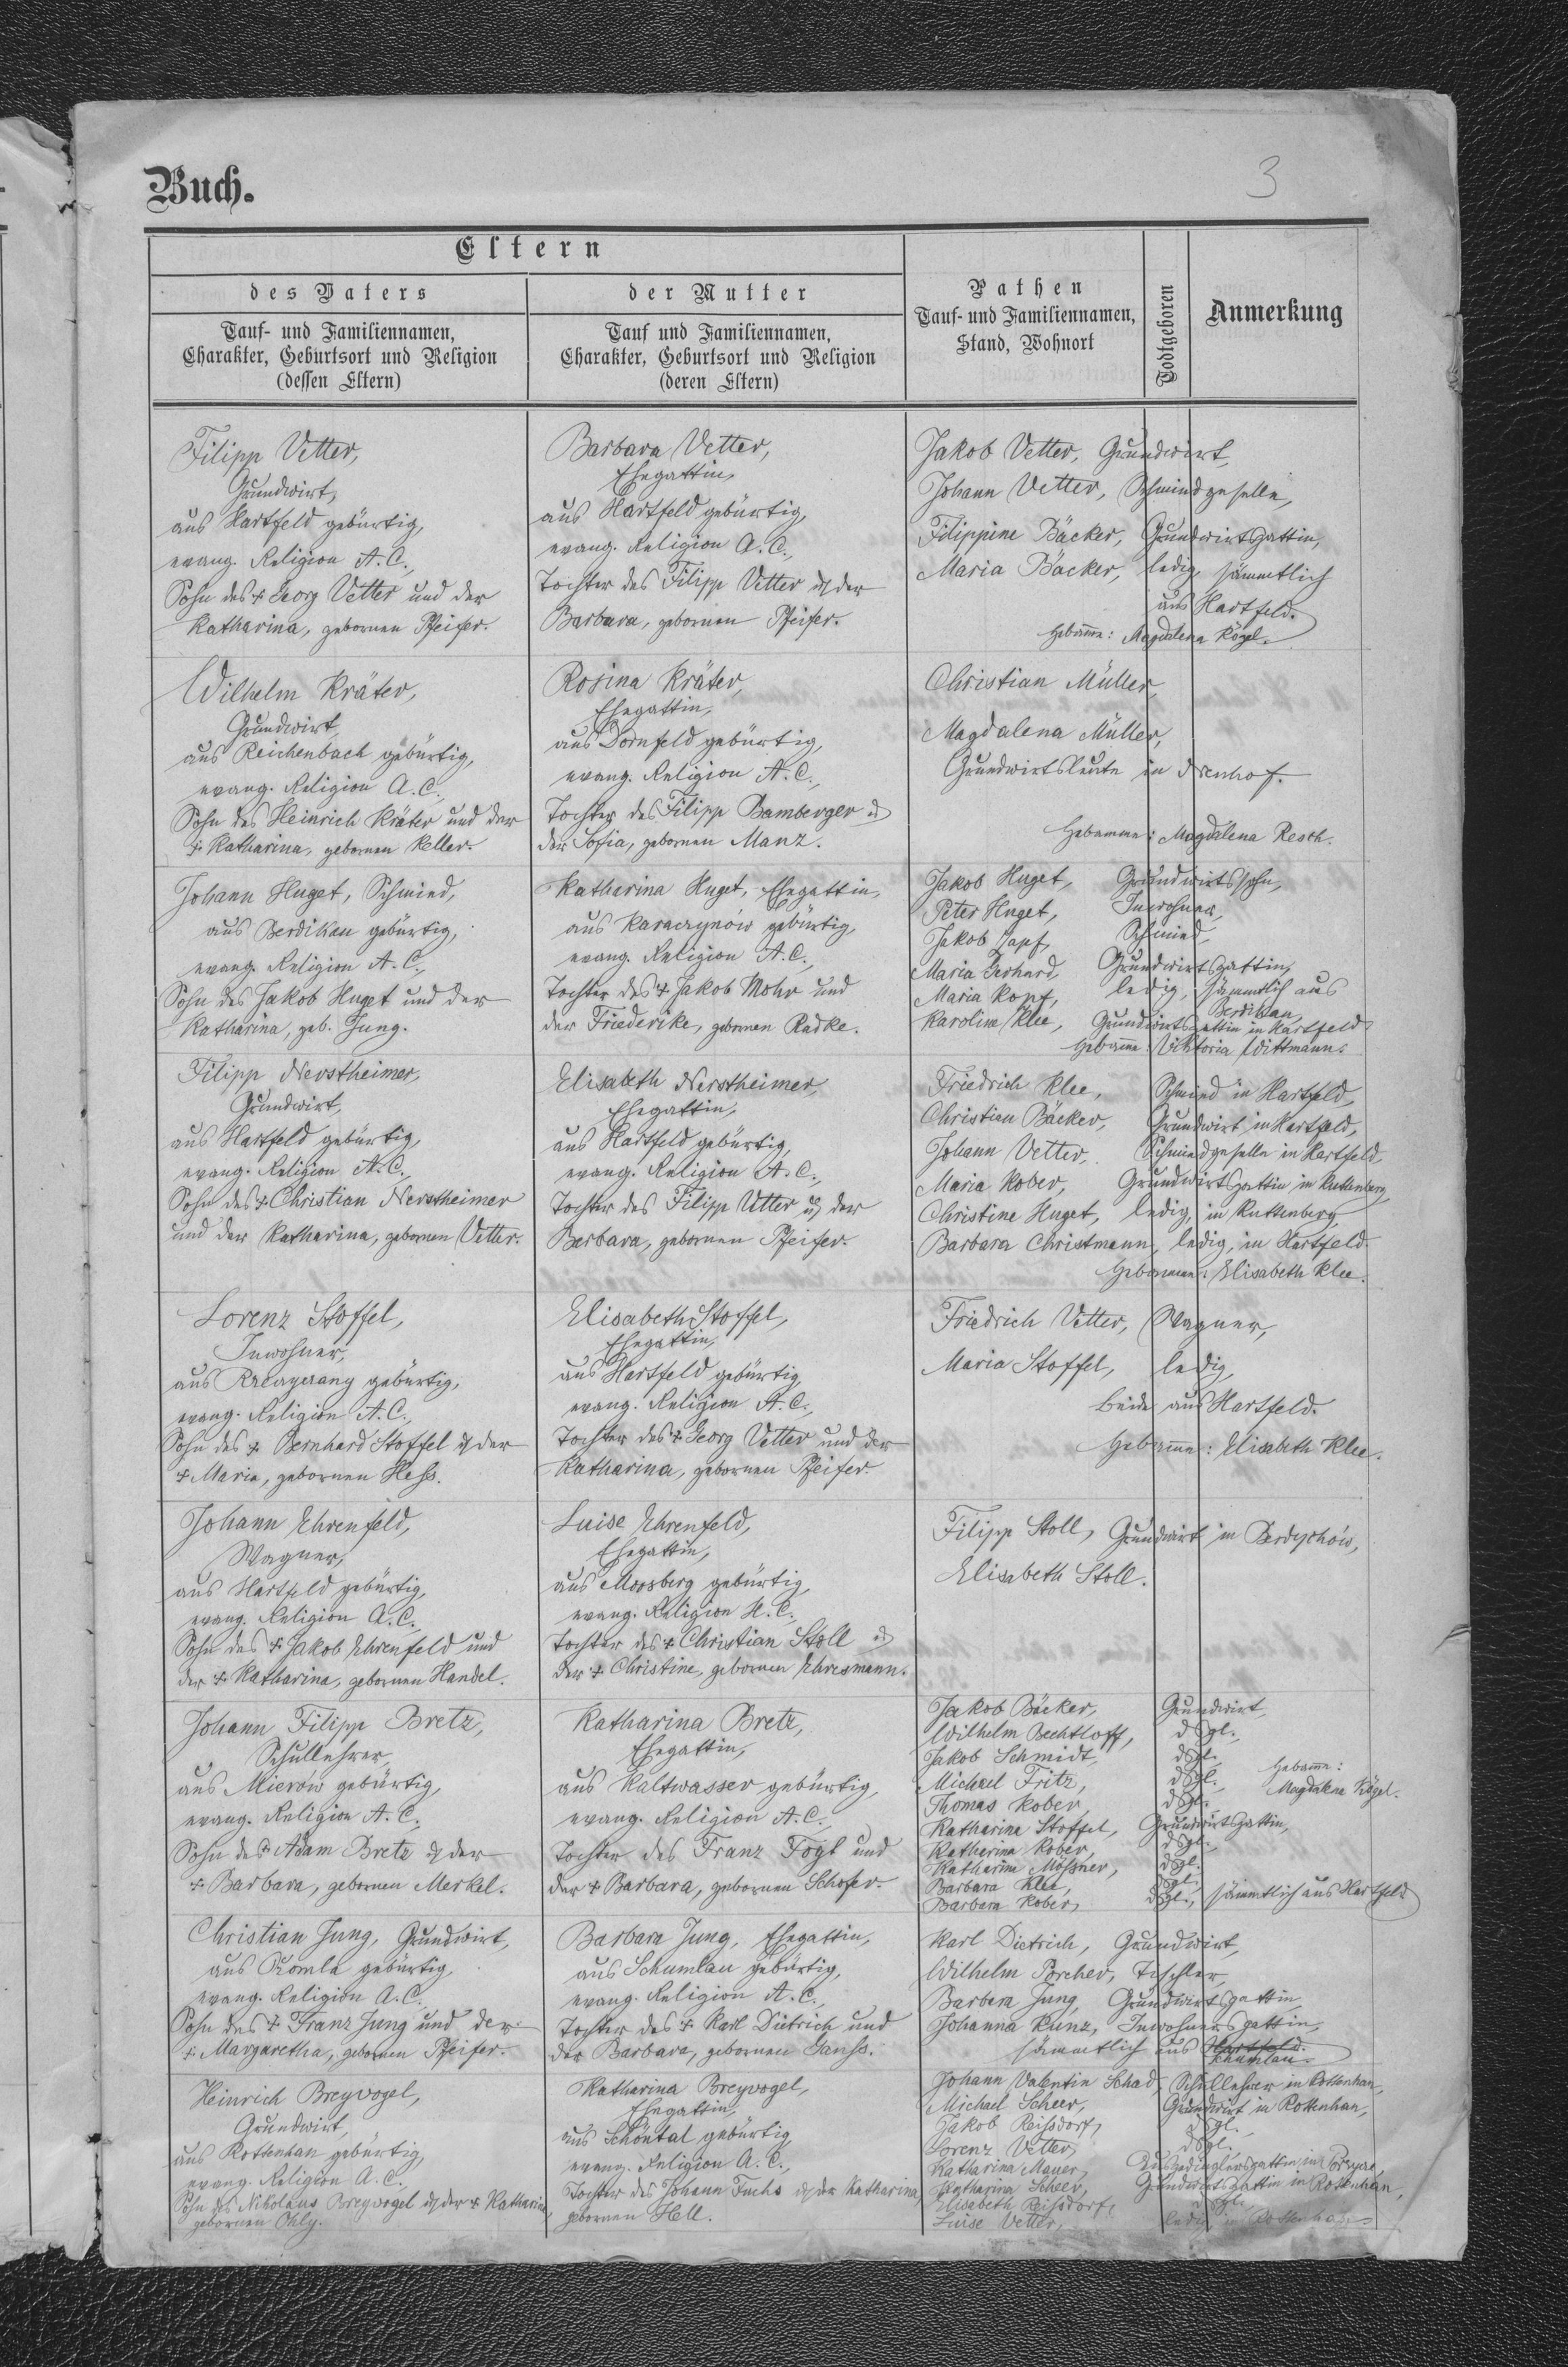 Buch.
3
Eltern
des Vaters
der Mutter
Pathen
Tauf- und Familiennamen,
Stand, Wohnort
Todtgeboren
Anmerkung
Tauf- und Familiennamen,
Charakter, Geburtsort und Religion
(dessen Eltern)
Tauf und Familiennamen,
Charakter, Geburtsort und Religion
(deren Eltern)
Filipp Vetter,
Grundwirt,
aus Hartfeld gebürtig,
evang. Religion A. C.,
Sohn des + Georg Vetter und der
Katharina, gebornen Pfeifer.
Barbara Vetter,
Ehegattin,
aus Hartfeld gebürtig,
evang. Religion A. C.,
Tochter des Filipp Vetter u. der
Barbara, gebornen Pfeifer.
Jakob Vetter, Grundwirt,
Johann Vetter, Schmiedgeselle,
Filippine Bäcker, Grundwirtsgattin,
Maria Bäcker, ledig, sämmtlich
aus Hartfeld.
Hebamme: Magdalena Kögel.
Wilhelm Kräter,
Grundwirt,
aus Reichenbach gebürtig,
evang. Religion A. C.,
Sohn des Heinrich Kräter und der
+ Katharina, gebornen Keller.
Rosina Kräter,
Ehegattin,
aus Dornfeld gebürtig,
evang. Religion A. C.,
Tochter des Filipp Bamberger u.
der Sofia, gebornen Manz.
Christian Müller,
Magdalena Müller,
Grundwirtsleute in Neuhof.
Hebamme: Magdalena Resch.
Johann Huget, Schmied,
aus Berdikau gebürtig,
evang. Religion A. C.,
Sohn des Jakob Huget und der
Katharina, geb. Jung.
Katharina Huget, Ehegattin,
aus Karaczynów gebürtig,
evang. Religion A. C.,
Tochter des + Jakob Mohr und
der Friederike, gebornen Radke.
Jakob Huget, Grundwirtssohn,
Peter Huget, Inwohner,
Jakob Zapf, Schmied,
Maria Gerhard, Grundwirtsgattin,
Maria Kopf, ledig, sämmtlich aus
Berdikau,
Karoline Klee, Grundwirtsgattin in Hartfeld
Hebamme: Viktoria Wittmann.
Filipp Nerstheimer,
Grundwirt,
aus Hartfeld gebürtig,
evang. Religion A. C.,
Sohn des + Christian Nerstheimer
und der Katharina, gebornen Vetter.
Elisabeth Nerstheimer,
Ehegattin,
aus Hartfeld gebürtig,
evang. Religion A. C.,
Tochter des Filipp Vetter u. der
Barbara, gebornen Pfeifer.
Friedrich Klee, Schmied in Hartfeld,
Christian Bäcker, Grundwirt in Hartfeld,
Johann Vetter, Schmiedgeselle in Hartfeld,
Maria Kober, Grundwirtsgattin in Kuttenberg,
Christine Huget, ledig, in Kuttenberg,
Barbara Christmann, ledig, in Hartfeld.
Hebamme: Elisabeth Klee.
Lorenz Stoffel,
Inwohner,
aus gebürtig,
evang. Religion A. C.,
Sohn des + Bernhard Stoffel u. der
+ Maria, gebornen Hess.
Elisabeth Stoffel,
Ehegattin,
aus Hartfeld gebürtig,
evang. Religion A. C.,
Tochter des + Georg Vetter und der
Katharina, gebornen Pfeifer.
Friedrich Vetter, Wagner,
Maria Stoffel, ledig,
beide aus Hartfeld.
Hebamme: Elisabeth Klee.
Johann Ehrenfeld,
Wagner,
aus Hartfeld gebürtig,
evang. Religion A. C.,
Sohn des + Jakob Ehrenfeld und
der + Katharina, gebornen Handel.
Luise Ehrenfeld,
Ehegattin,
aus Moosberg gebürtig,
evang. Religion H. C.,
Tochter des + Christian Stoll u.
der + Christine, gebornen Ehresmann.
Filipp Stoll, Grundwirt in Berdychów,
Elisabeth Stoll.
Johann Filipp Bretz,
Schullehrer,
aus Mierów gebürtig,
evang. Religion A. C.,
Sohn des + Adam Bretz u. der
+ Barbara, gebornen Merkel.
Katharina Bretz,
Ehegattin,
aus Kaltwasser gebürtig,
evang. Religion A. C.,
Tochter des Franz Fogt und
der + Barbara, gebornen Schofer.
Jakob Bäcker, Grundwirt,
Wilhelm Bechtloff, dsgl.,
Jakob Schmidt, dsgl.,
Michael Fritz, dsgl.,
Thomas Kober, dsgl.
Hebamme:
Magdalena Kögel.
Katharina Stoffel, Grundwirtsgattin,
Katharina Kober, dsgl.,
Katharina Mössner, dsgl.
Barbara Klee, dsgl.,
Barbara Kober, dsgl., sämmtlich aus Hartfeld
Christian Jung, Grundwirt,
aus Romla gebürtig,
evang. Religion A. C.,
Sohn des + Franz Jung und der
+ Margaretha, gebornen Pfeifer.
Barbara Jung, Ehegattin,
aus Schumlau gebürtig,
evang. Religion A. C.,
Tochter des + Karl Dietrich und
der Barbara, gebornen Ganss.
Karl Dietrich, Grundwirt,
Wilhelm Porcher, Tischler,
Barbara Jung, Grundwirtsgattin,
Johanna Kunz, Inwohnersgattin,
sämmtlich aus Hartfeld.
Schumlau.
Heinrich Breyvogel,
Grundwirt,
aus Rottenhan gebürtig,
evang. Religion A. C.,
Sohn des Nikolaus Breyvogel u. der + Katharina,
gebornen Ohly.
Katharina Breyvogel,
Ehegattin,
aus Schöntal gebürtig,
evang. Religion A. C.,
Tochter des Johann Fuchs u. der Katharina,
gebornen Hell.
Johann Valentin Schad, Schullehrer in Rottenhan,
Michael Scheer, Grundwirt in Rottenhan,
Jakob Reissdorf, dsgl.,
Lorenz Vetter, dsgl.
Katharina Mauer,
Katharina Scheer, Grundwirtsgattin in Rottenhan,
Elisabeth Reissdorf, dsgl.,
Luise Vetter, ledig in Rottenhan